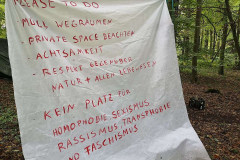 PLEASE TO DO
- MÜLL WEGRÄUMEN
- PRIVATE SPACE BEACHTEN
- ACHTSAMKEIT
- RESPEKT GEGENÜBER
NATUR + ALLEN LEBEWESEN
KEIN PLATZ FÜR
HOMOPHOBIE SEXISMUS
RASSISMUS TRANSPHOBIE
UND FASCHISMUS